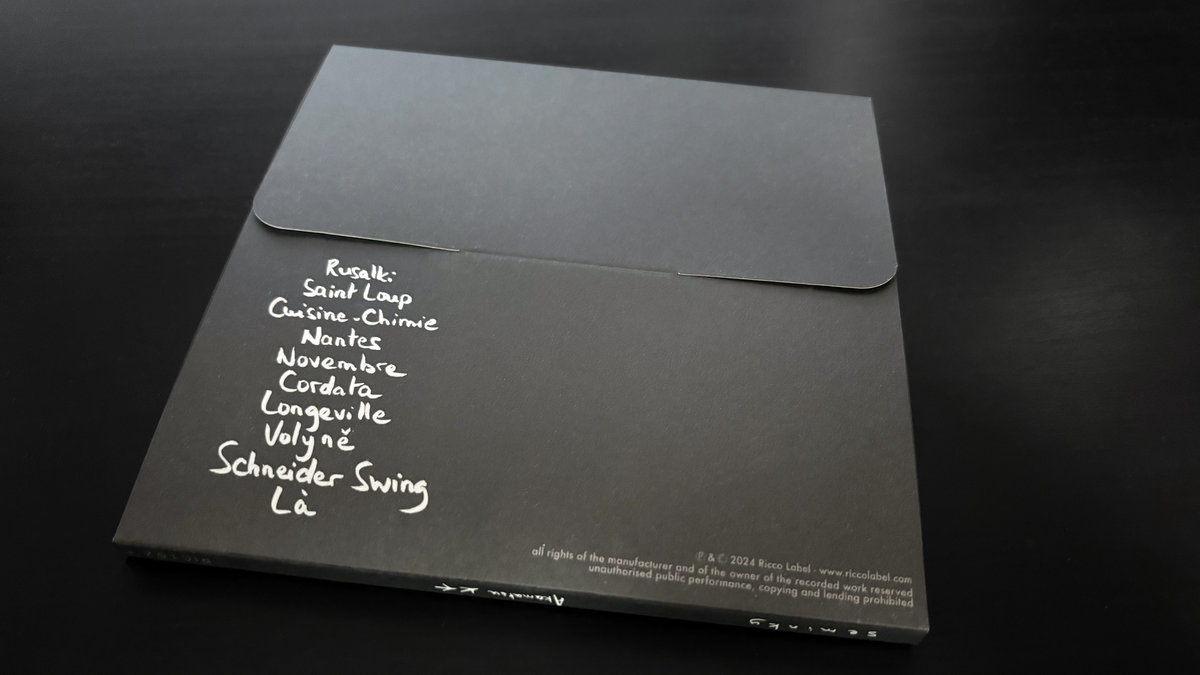 Rusalki
Saint Loup
Cuisine-Chimie
Nantes
Novembre
Cordata
Longeville
Volyně
Schneider Swing
Là
℗ & © 2024 Ricco Label - www.riccolabel.com
all rights of the manufacturer and of the owner of the recorded work reserved
unauthorised public performance, copying and lending prohibited
seminky